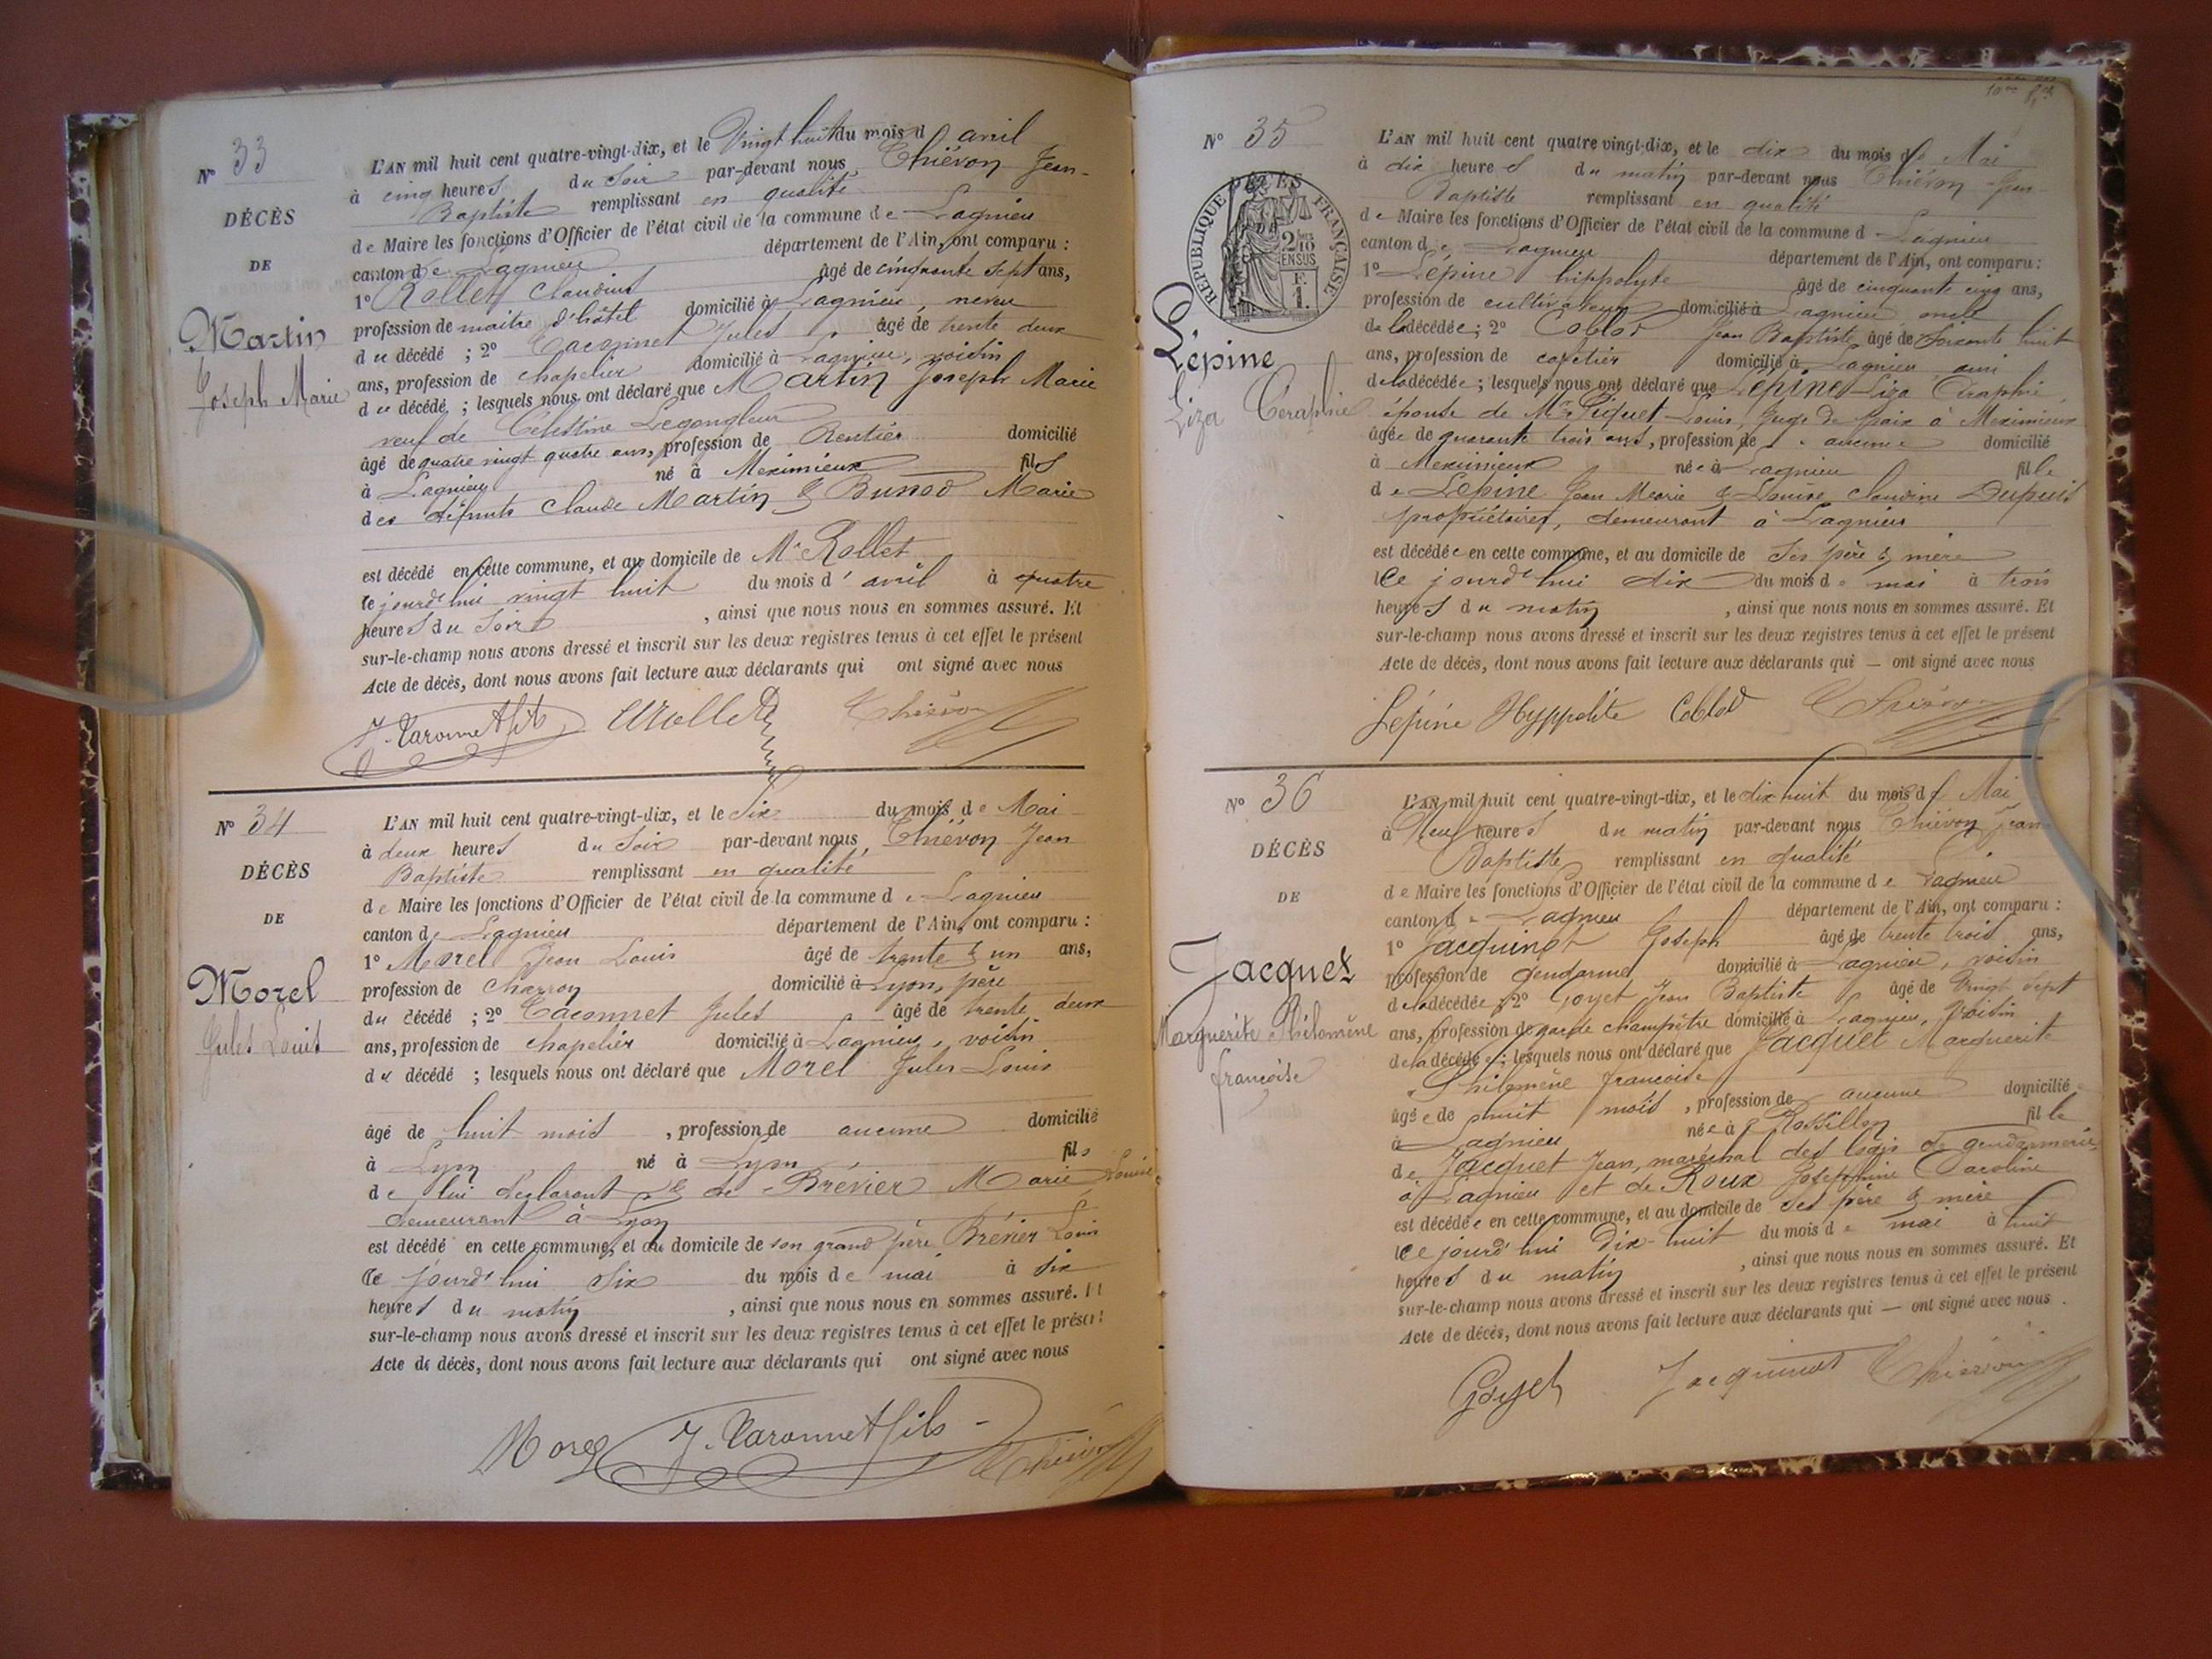 N° 33
DÉCÈS
DE
Martin
Joseph Marie
L'AN mil huit cent quatre-vingt-dix, et le Vingt huit du mois d'avril
à cinq heures du Soir par-devant nous Thiévon Jean-
Baptiste remplissant en qualité
de Maire les fonctions d'Officier de l'état civil de la commune de Lagnieu
canton de Lagnieu département de l'Ain, ont comparu :
1° Rollet Claudius âgé de cinquante sept ans,
profession de maitre d'hôtel domicilié à Lagnieu, neveu
du décédé ; 2° Taconnet Jules âgé de trente deux
ans, profession de chapelier domicilié à Lagnieu, voisin
du décédé ; lesquels nous ont déclaré que Martin Joseph Marie
veuf de Célestine Legongleur
âgé de quatre vingt quatre ans, profession de Rentier domicilié
à Lagnieu né à Meximieux fils
des défunts Claude Martin & Bunod Marie
est décédé en cette commune, et au domicile de Mr Rollet
ce jourd'hui vingt huit du mois d'avril à quatre
heures du Soir , ainsi que nous nous en sommes assuré. Et
sur-le-champ nous avons dressé et inscrit sur les deux registres tenus à cet effet le présent
Acte de décès, dont nous avons fait lecture aux déclarants qui ont signé avec nous
J. Taconnet fils Rollet Thiévon
N° 34
DÉCÈS
DE
Morel
Jules Louis
L'AN mil huit cent quatre-vingt-dix, et le Six du mois de Mai
à deux heures du Soir par-devant nous Thiévon Jean
Baptiste remplissant en qualité
de Maire les fonctions d'Officier de l'état civil de la commune de Lagnieu
canton de Lagnieu département de l'Ain, ont comparu :
1° Morel Jean Louis âgé de trente & un ans,
profession de Charron domicilié à Lyon, père
du décédé ; 2° Taconnet Jules âgé de trente deux
ans, profession de chapelier domicilié à Lagnieu, voisin
du décédé ; lesquels nous ont déclaré que Morel Jules Louis
âgé de huit mois , profession de aucune domicilié
à Lyon né à Lyon fils
de lui déclarant & de Brévier Marie Louise
demeurant à Lyon
est décédé en cette commune, et au domicile de son grand père Brévier Louis
Ce jourd'hui Six du mois de mai à six
heures du matin , ainsi que nous nous en sommes assuré. Et
sur-le-champ nous avons dressé et inscrit sur les deux registres tenus à cet effet le présent
Acte de décès, dont nous avons fait lecture aux déclarants qui ont signé avec nous
Morel J. Taconnet fils Thiévon
N° 35
RÉPUBLIQUE FRANÇAISE
2/10 EN SUS
Lépine
Liza Céraphie
L'AN mil huit cent quatre vingt-dix, et le dix du mois de Mai
à dix heures du matin par-devant nous Thiévon Jean
Baptiste remplissant en qualité
de Maire les fonctions d'Officier de l'état civil de la commune d Lagnieu
canton de Lagnieu département de l'Ain, ont comparu :
1° Lépine hippolyte âgé de cinquante cinq ans,
profession de cultivateur domicilié à Lagnieu oncle
de la décédée ; 2° Coblod Jean Baptiste âgé de Soixante huit
ans, profession de cafetier domicilié à Lagnieu ami
de la décédée ; lesquels nous ont déclaré que Lépine Liza Céraphie,
épouse de Mr Piquet Louis, Juge de Paix à Meximieux
âgée de quarante trois ans, profession de aucune domicilié
à Meximieux née à Lagnieu fille
de Lépine Jean Marie & Louise Claudine Dupuis
propriétaires, demeurant à Lagnieu
est décédée en cette commune, et au domicile de Ses père & mère
Ce jourd'hui dix du mois de mai à trois
heures du matin , ainsi que nous nous en sommes assuré. Et
sur-le-champ nous avons dressé et inscrit sur les deux registres tenus à cet effet le présent
Acte de décès, dont nous avons fait lecture aux déclarants qui — ont signé avec nous
Lépine Hyppolite Coblod Thiévon
N° 36
DÉCÈS
DE
Jacquet
Marguerite Philomène
françoise
L'AN mil huit cent quatre-vingt-dix, et le dix huit du mois de Mai
à Neuf heures du matin par-devant nous Thiévon Jean
Baptiste remplissant en qualité
de Maire les fonctions d'Officier de l'état civil de la commune de Lagnieu
canton de Lagnieu département de l'Ain, ont comparu :
1° Jacquinot Joseph âgé de trente trois ans,
profession de Gendarme domicilié à Lagnieu, voisin
de la décédée ; 2° Goyet Jean Baptiste âgé de Vingt Sept
ans, profession de garde champêtre domicilié à Lagnieu, voisin
de la décédée ; lesquels nous ont déclaré que Jacquet Marguerite
Philomène françoise
âgée de huit mois , profession de aucune domicilié
à Lagnieu née à Rossillon fille
de Jacquet Jean, maréchal des logis de gendarmerie,
à Lagnieu et de Roux Joséphine Caroline
est décédée en cette commune, et au domicile de ses père & mère
Ce jourd'hui Dix-huit du mois de mai à huit
heures du matin , ainsi que nous nous en sommes assuré. Et
sur-le-champ nous avons dressé et inscrit sur les deux registres tenus à cet effet le présent
Acte de décès, dont nous avons fait lecture aux déclarants qui — ont signé avec nous .
Goyet Jacquinot Thiévon